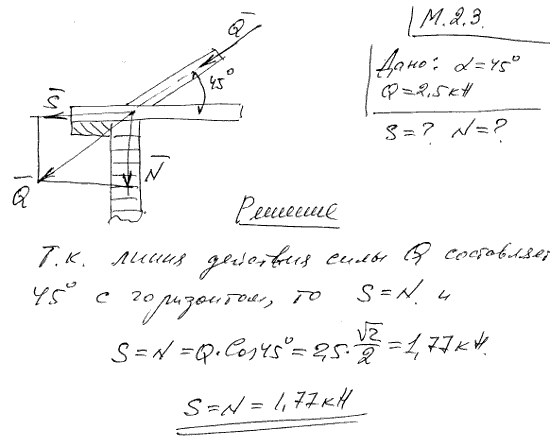 М.2.3.
Q̅
45°
S̅
N̅
Q̅
Дано: α=45°
Q=2,5кН
S=? N=?
Решение
Т.к. линия действия силы Q составляет
45° с горизонтом, то S=N. и
S=N=Q·Cos45°=2,5·√2/2=1,77кН.
S=N=1,77кН